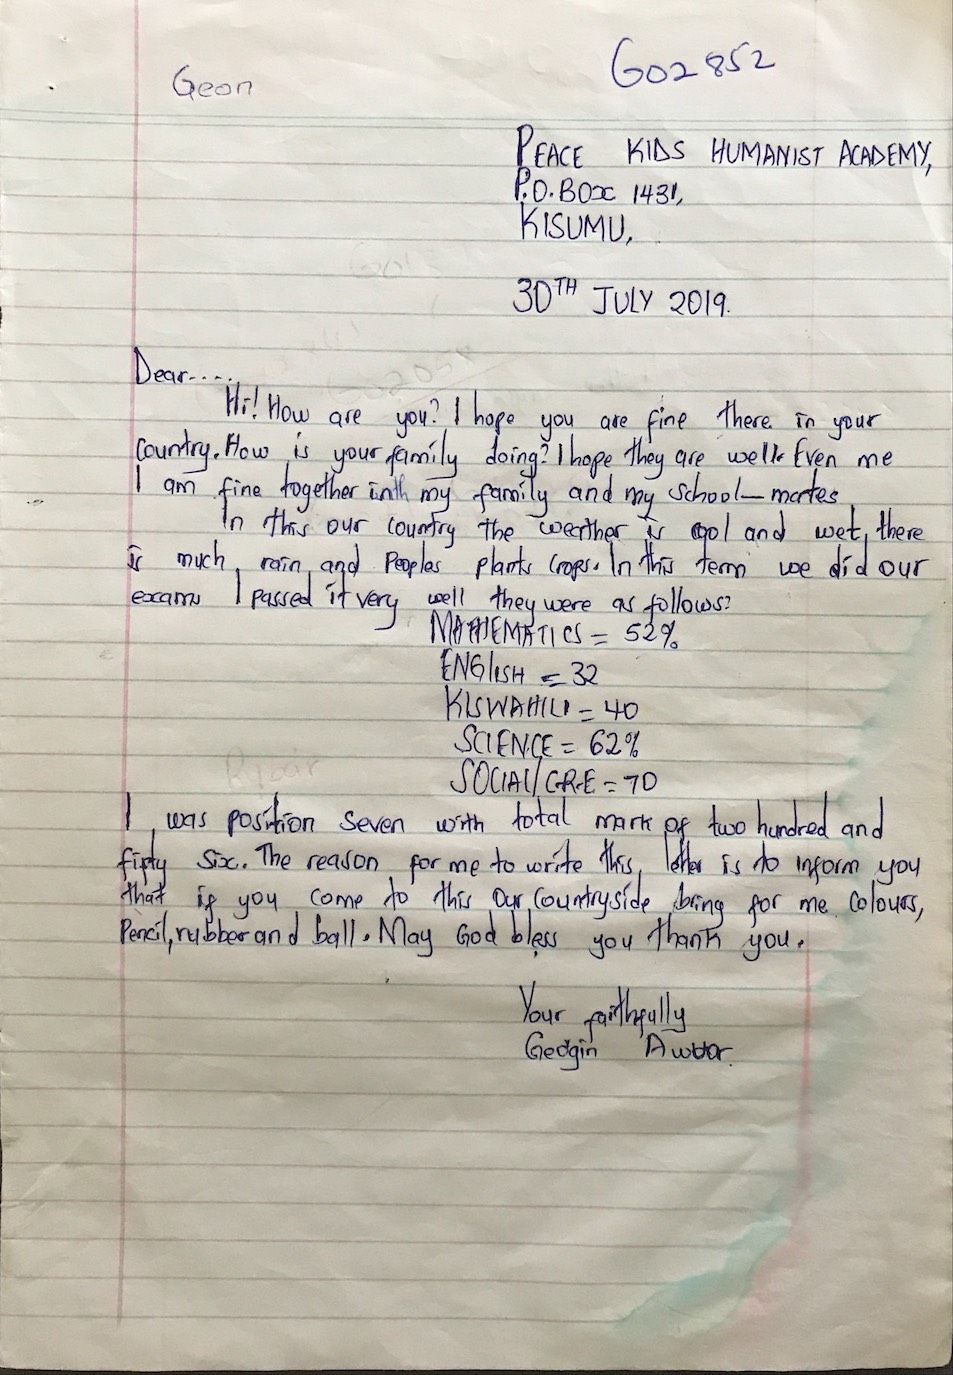 Geon
G02852
PEACE KIDS HUMANIST ACADEMY,
P.O. BOX 1431,
KISUMU,
30TH JULY 2019.
Dear.....
Hi! How are you? I hope you are fine there in your
country. How is your family doing? I hope they are well. Even me
I am fine together with my family and my school-mates
In this our country the weather is cool and wet, there
is much rain and Peoples plants crops. In this term we did our
exams I passed it very well they were as follows:
MATHEMATICS = 52%
ENGlISH = 32
KISWAHILI = 40
SCIENCE = 62%
SOCIAL/C.R.E = 70
I was position seven with total mark of two hundred and
fifty six. The reason for me to write this letter is to inform you
that if you come to this our countryside bring for me colours,
Pencil, rubber and ball. May God bless you thank you.
Your faithfully